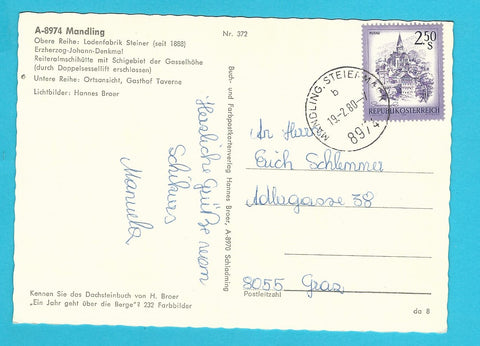 A-8974 Mandling
Obere Reihe: Lodenfabrik Steiner (seit 1888)
Erzherzog-Johann-Denkmal
Reiteralmschihütte mit Schigebiet der Gasselhöhe
(durch Doppelsessellift erschlossen)
Untere Reihe: Ortsansicht, Gasthof Taverne
Lichtbilder: Hannes Broer
Nr. 372
Herzliche Grüße vom
Schikurs
Manuela
Kennen Sie das Dachsteinbuch von H. Broer
„Ein Jahr geht über die Berge"? 232 Farbbilder
Buch- und Farbpostkartenverlag Hannes Broer, A-8970 Schladming
MANDLING, STEIERMARK
b
19.-2.80-
8974
2.50
S
REPUBLIK ÖSTERREICH
An Herrn
Erich Schlemmer
Adlergasse 38
8055 Graz
Postleitzahl
da 8